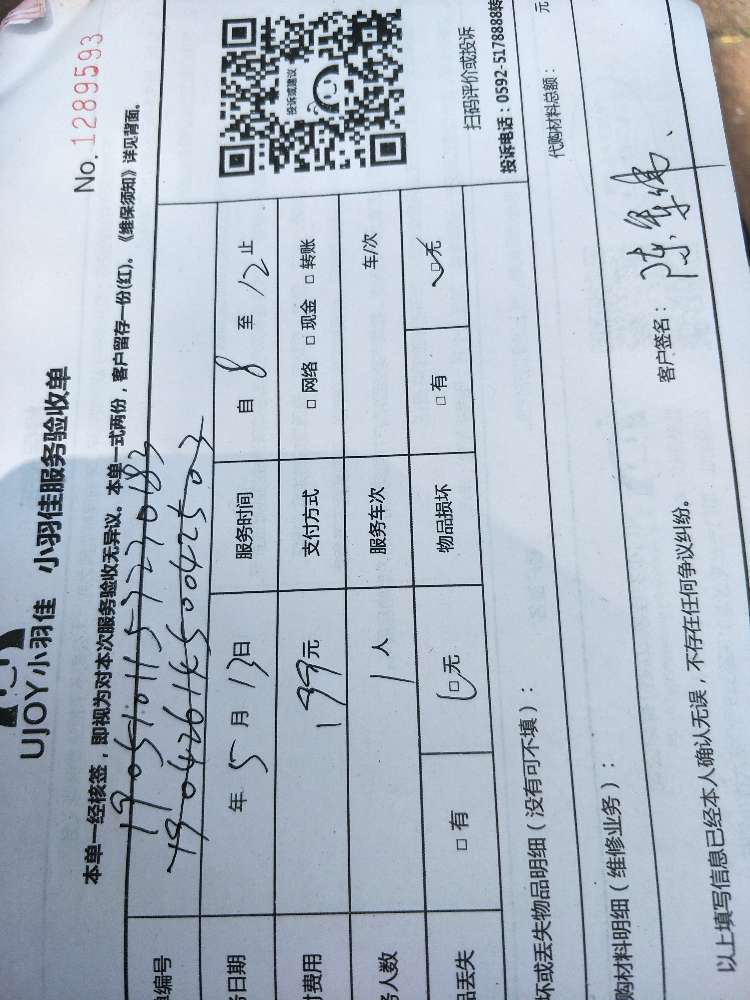 No. 1289593
UJOY小羽佳 小羽佳服务验收单
本单一经核签，即视为对本次服务验收无异议。本单一式两份，客户留存一份(红)。《维保须知》详见背面。
单编号 19051011573230183
1904261450042503
务日期 年 5 月 13 日 服务时间 自 8 至 12 止
付费用 199元 支付方式 □ 网络 □ 现金 □ 转账
务人数 1 人 服务车次 车/次
品丢失 □ 有 □ 无 物品损坏 □ 有 □ 无
投诉或建议
扫码评价或投诉
投诉电话：0592-5178888转
坏或丢失物品明细（没有可不填）：
购材料明细（维修业务）： 代购材料总额： 元
以上填写信息已经本人确认无误，不存在任何争议纠纷。 客户签名：陈